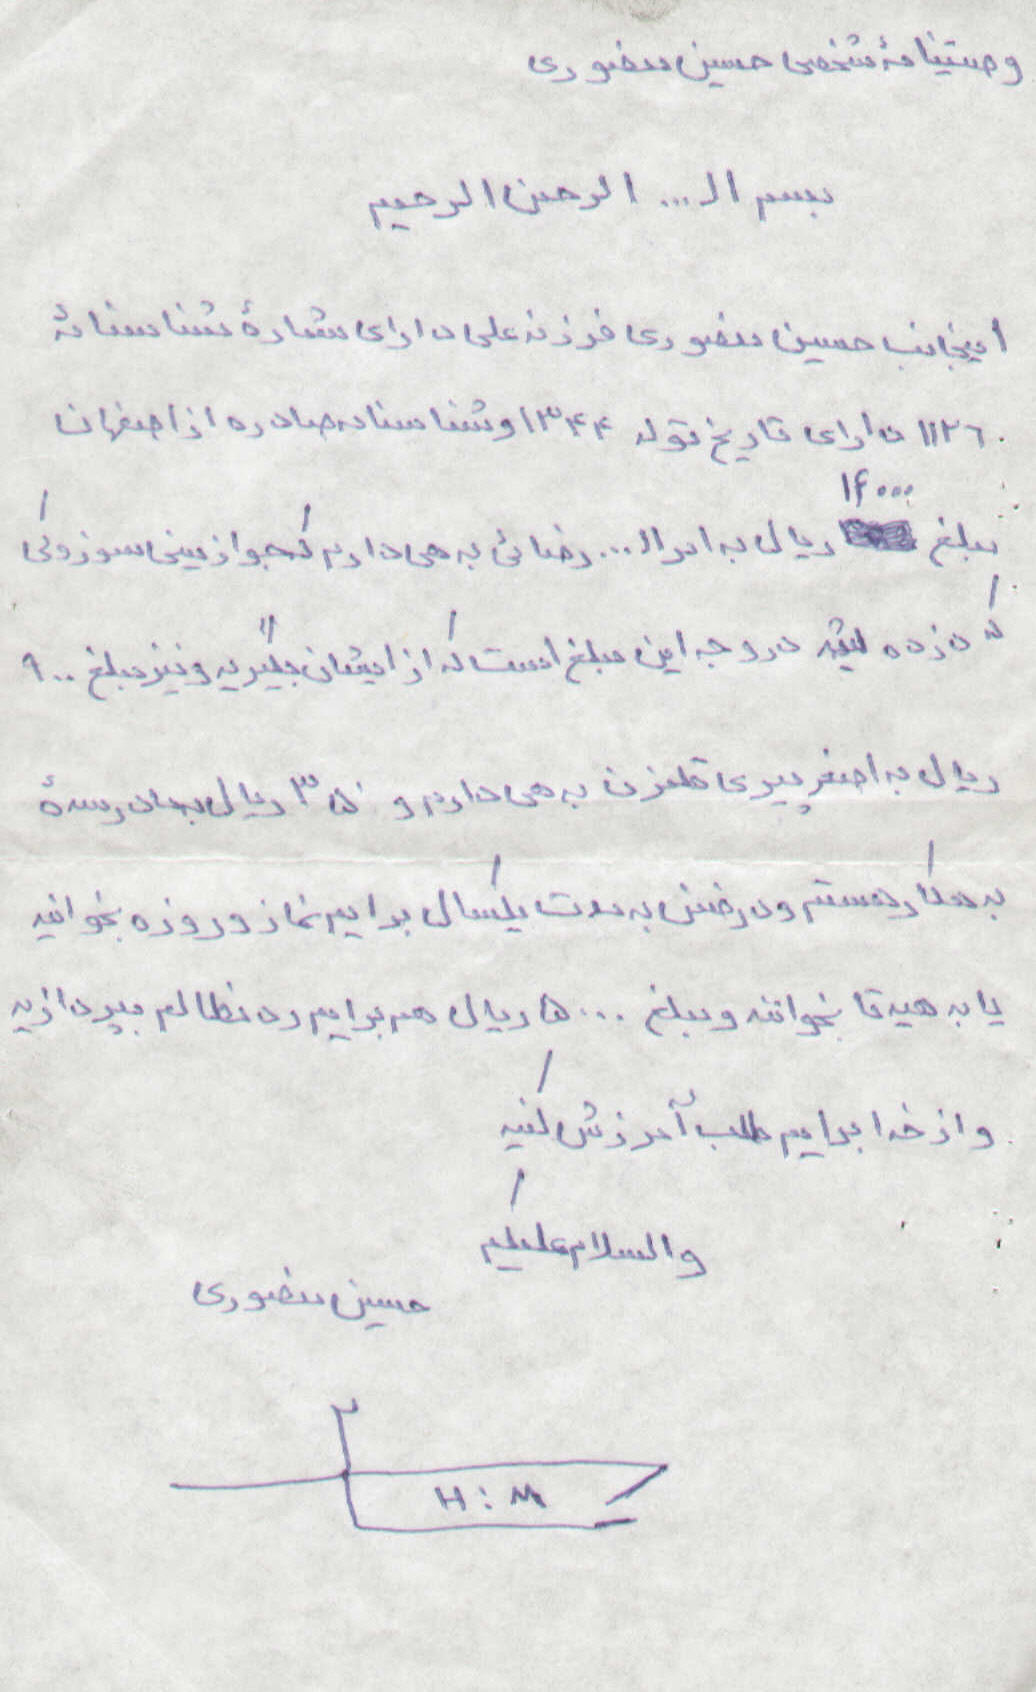 وصیتنامهٔ شخصی حسین منصوری
بسم الـ... الرحمن الرحیم
اینجانب حسین منصوری فرزند علی دارای شمارهٔ شناسنامهٔ
۱۱۲۶۰ دارای تاریخ تولد ۱۳۴۴ و شناسنامه صادره از اصفهان
۱۴۰۰۰
مبلغ ریال به امرالـ... رضائی بدهی دارم که جواز مینی سوزوکی
که نزده در وجه این مبلغ است که از ایشان بگیرید و نیز مبلغ ۹۰۰
ریال به اصغر پیری قلمزن بدهی دارم و ۳۵۰ ریال به مدرسهٔ
بدهکار هستم و در ضمن به مدت یکسال برایم نماز و روزه بخوانید
یا بدهید تا بخوانند و مبلغ ۵۰۰۰ ریال هم برایم رد مظالم بپردازید
و از خدا برایم طلب آمرزش کنید
والسلام علیکم
حسین منصوری
H : M